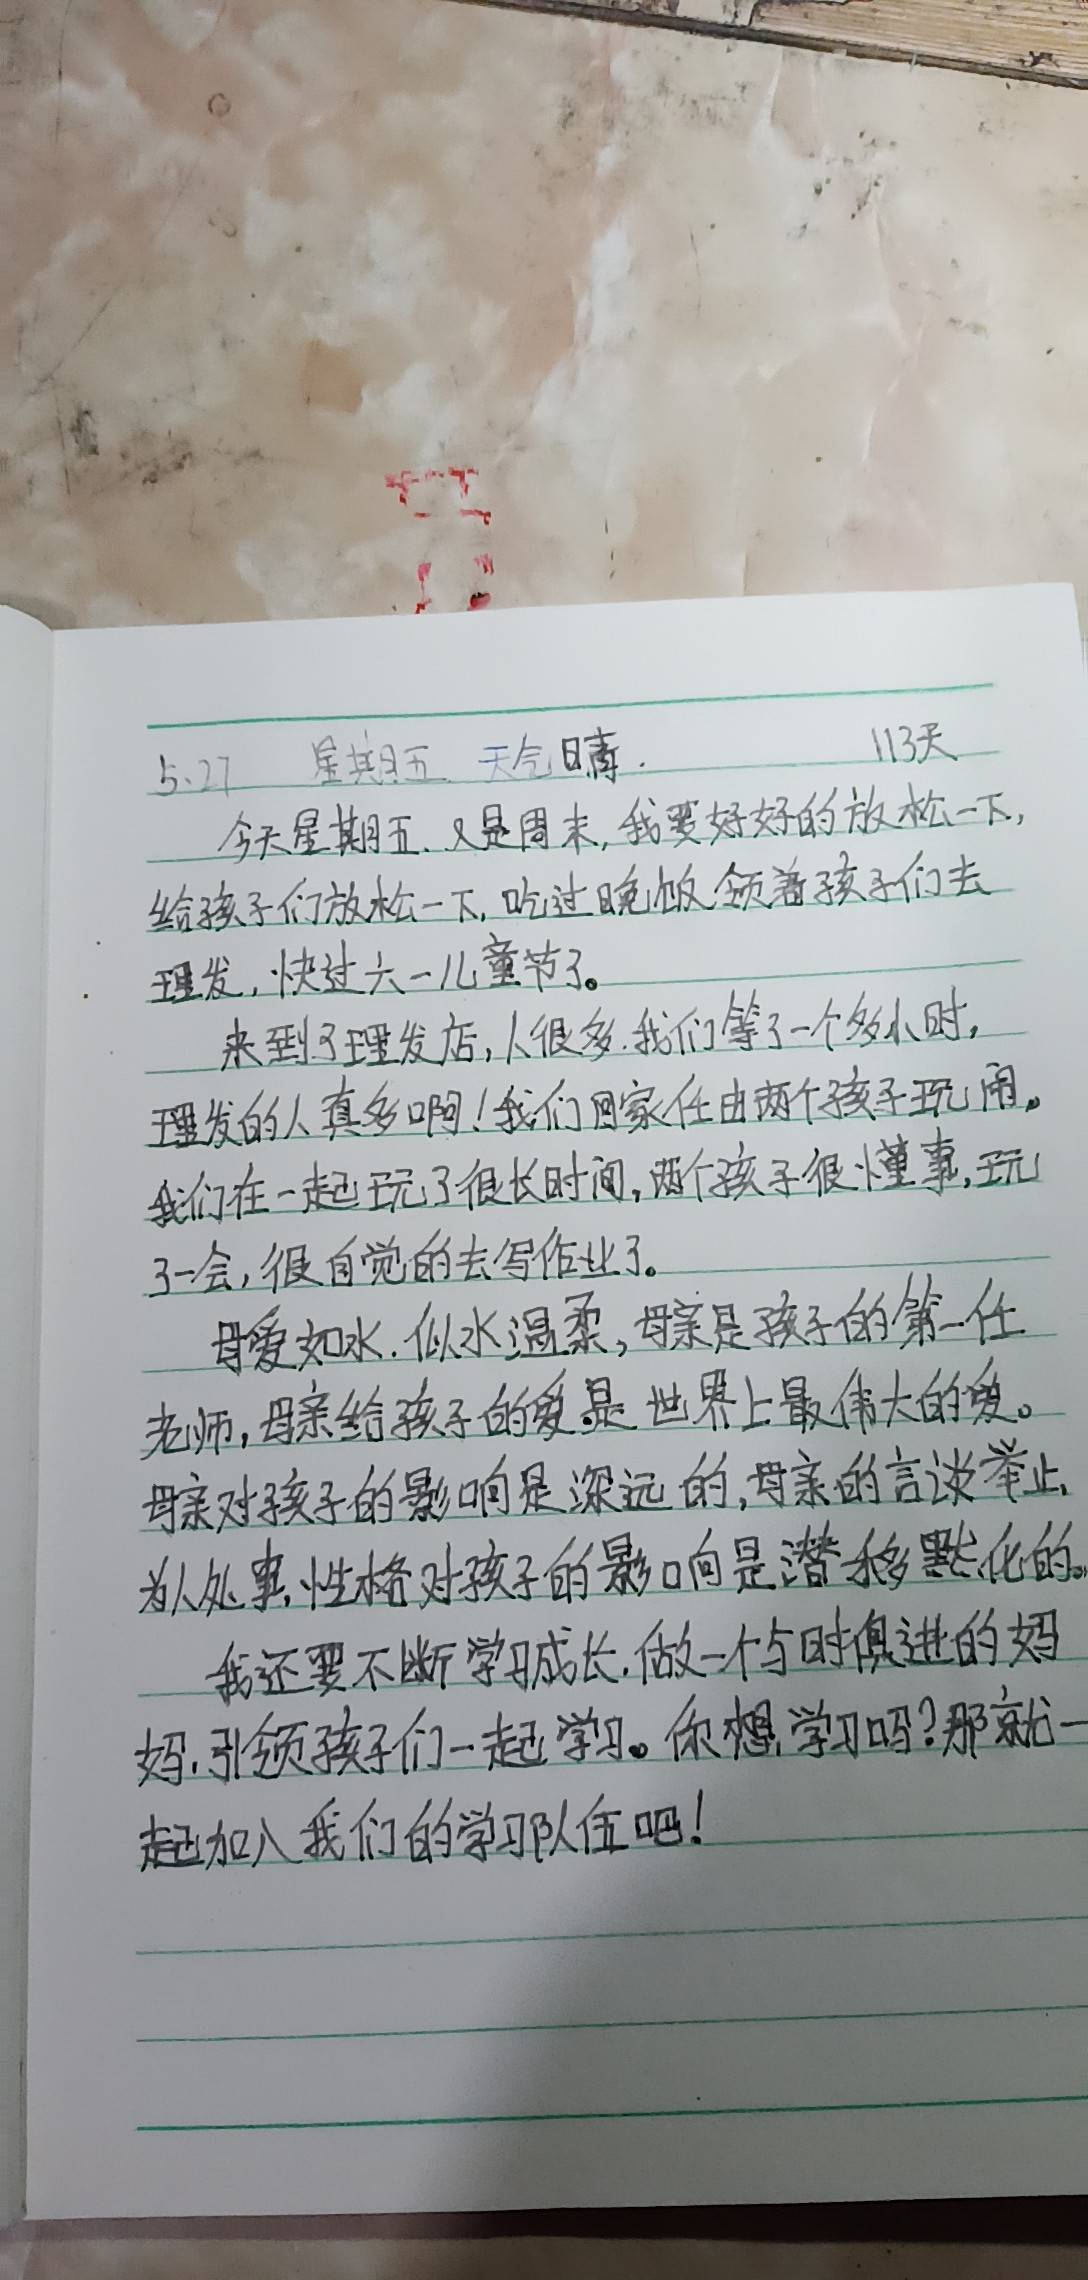 5.27 星期五 天气晴. 113天
今天星期五.又是周末,我要好好的放松一下,
给孩子们放松一下.吃过晚饭领着孩子们去
理发,快过六一儿童节了。
来到了理发店,人很多.我们等了一个多小时,
理发的人真多啊!我们回家任由两个孩子玩闹。
我们在一起玩了很长时间,两个孩子很懂事,玩
了一会,很自觉的去写作业了。
母爱如水.似水温柔,母亲是孩子的第一任
老师,母亲给孩子的爱是世界上最伟大的爱。
母亲对孩子的影响是深远的,母亲的言谈举止,
为人处事,性格对孩子的影响是潜移默化的。
我还要不断学习成长.做一个与时俱进的妈
妈.引领孩子们一起学习。你想学习吗?那就一
起加入我们的学习队伍吧!